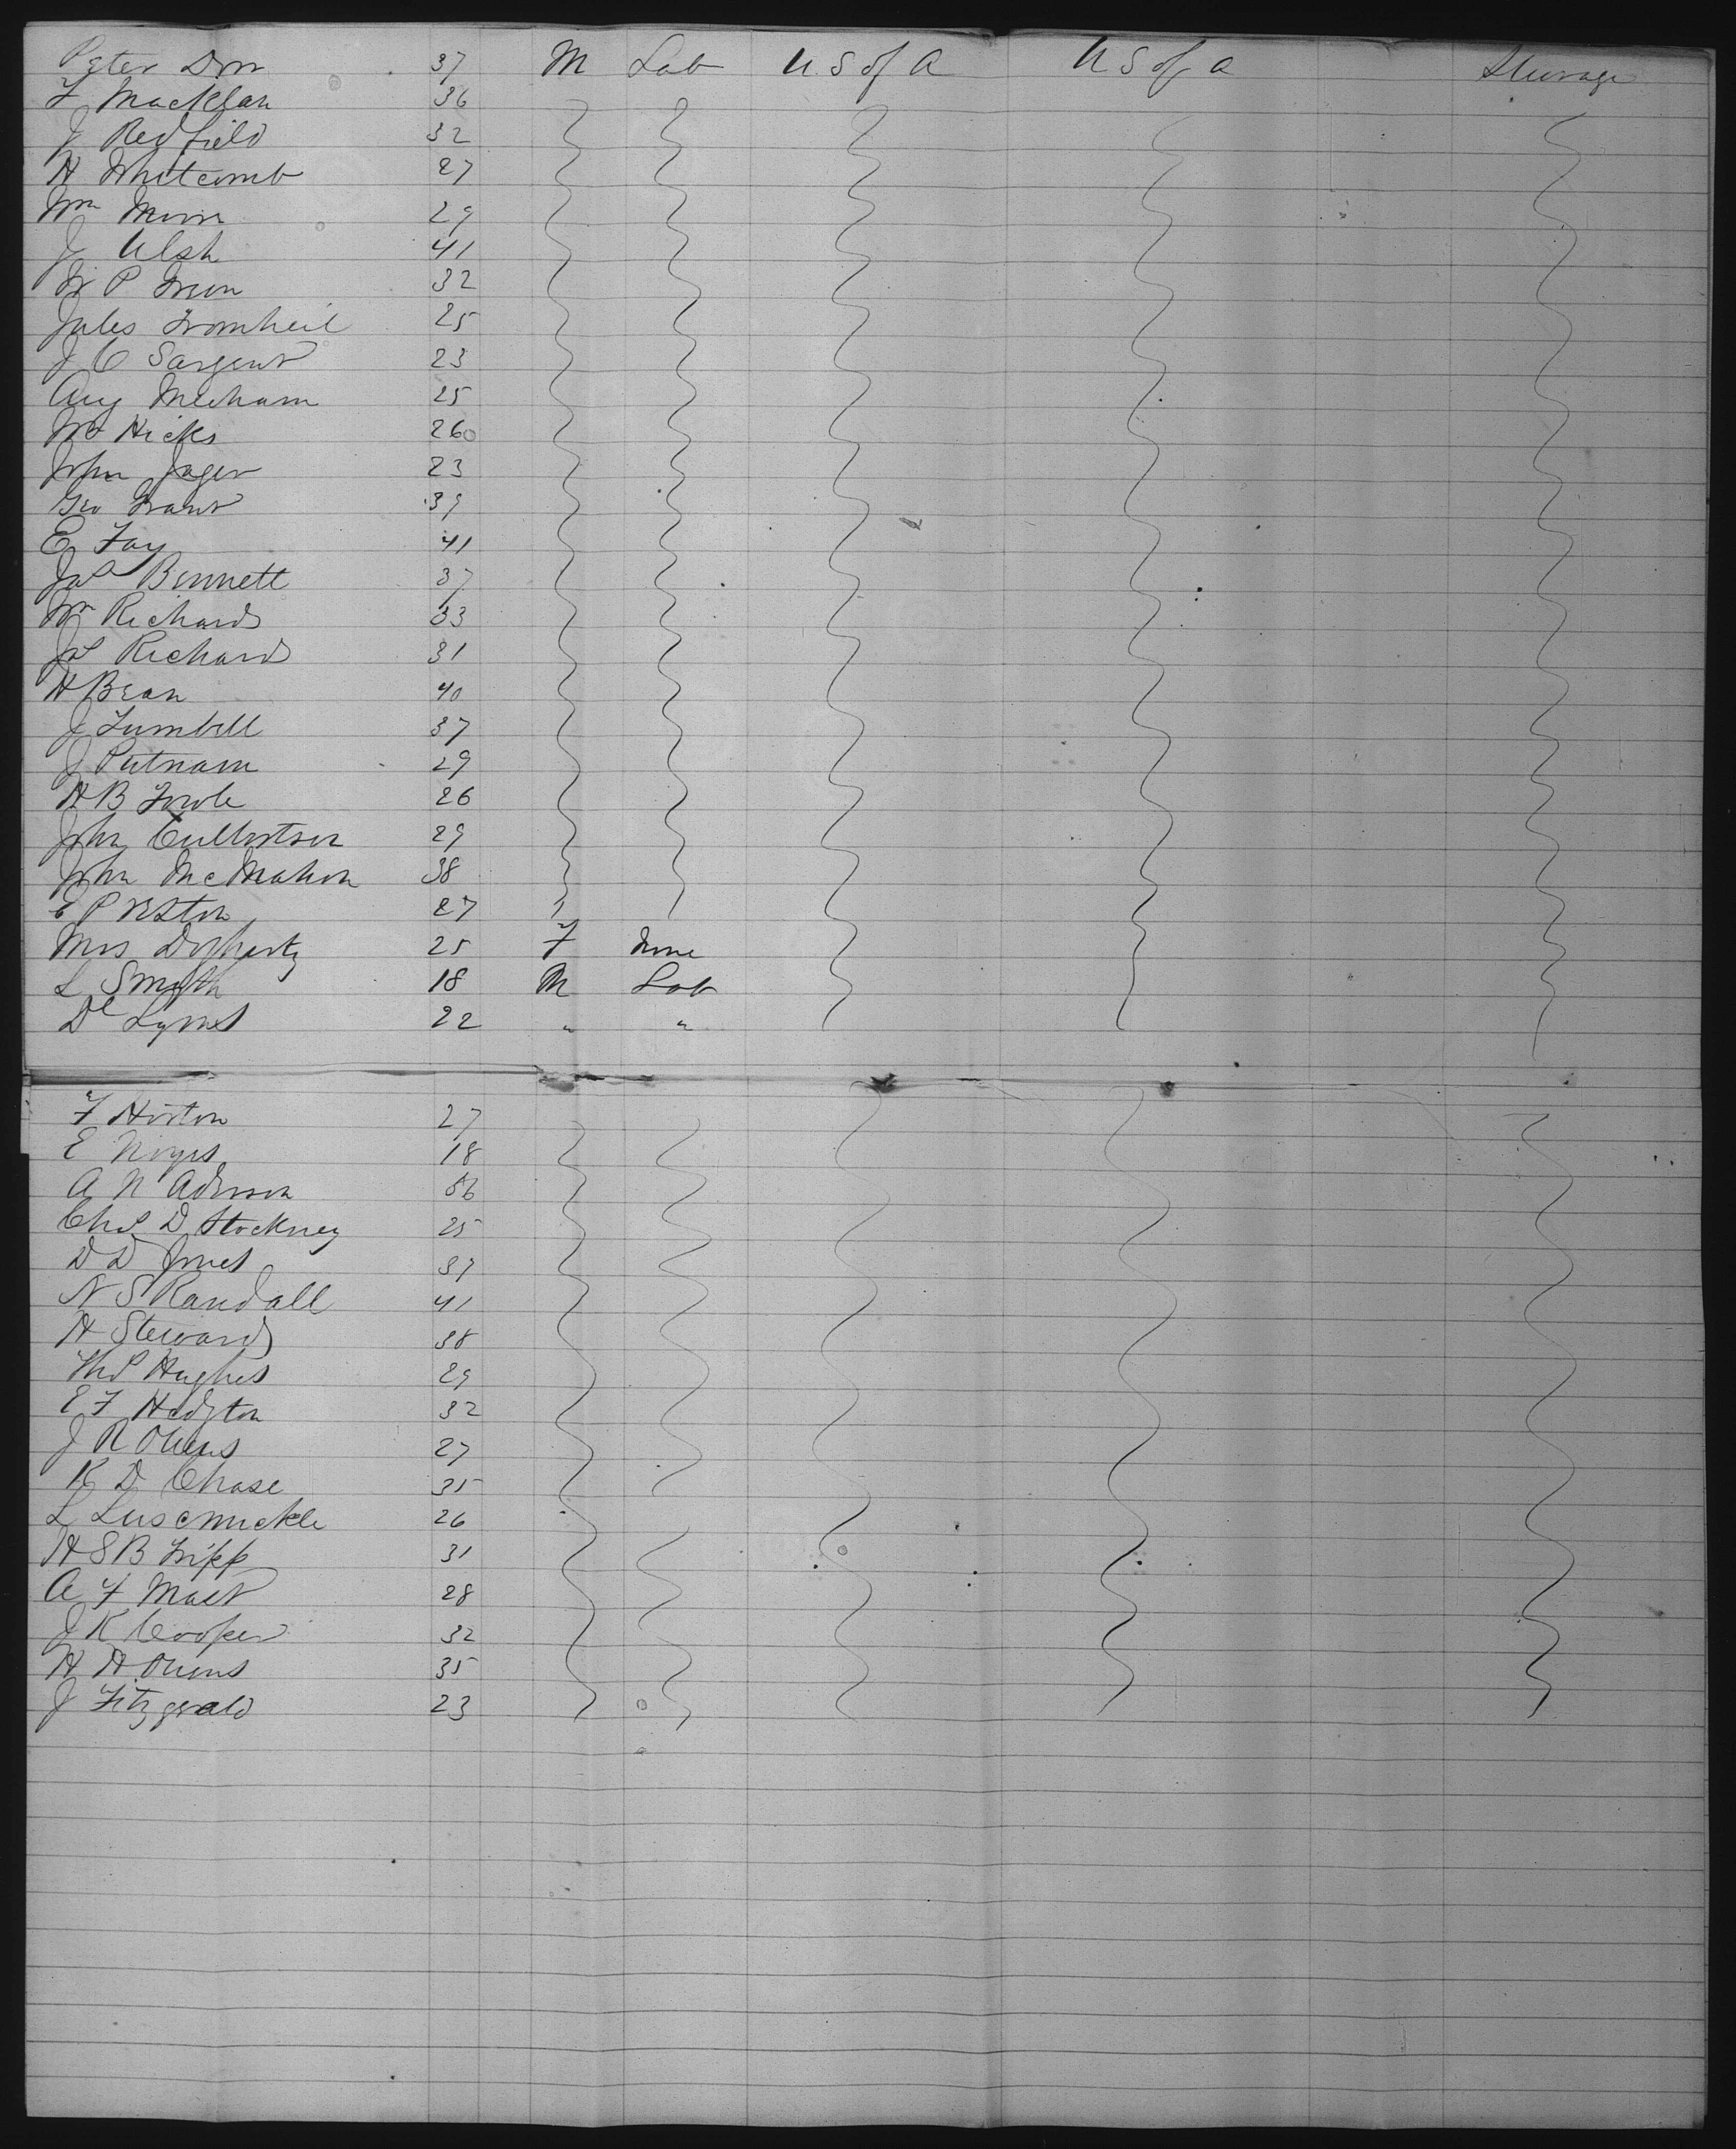 Peter Dorr 37 M Lab U S of A U S of A Steerage
F Macklan 36
J Redfield 32
H Whitcomb 27
Wm Moore 29
J Ulsh 41
W P 32
Jules 25
J C Sargent 23
Aug Mecham 25
Wm Hicks 26
John Jager 23
Geo Grant 39
E Fay 41
Jas Bennett 37
Wm Richards 33
Js Richards 31
H Bean 40
J Turnbell 37
J Putnam 29
H B Towle 26
John Culbertson 29
John McMahon 38
E Preston 27
Mrs Dogherty 25 F None
L Smyth 18 M Lab
De Lyones 22 " "
F Horton 27
E Noyes 18
A N Aderson 36
Chas D Stockney 25
D D Jones 37
N S Randall 41
H Steward 38
Thos Hughes 29
E F Hedgton 32
J R Owens 27
K D Chase 35
L 26
H S B Tripp 31
A F Mast 28
J K Cooper 32
H H Owens 35
J Fitzgerald 23